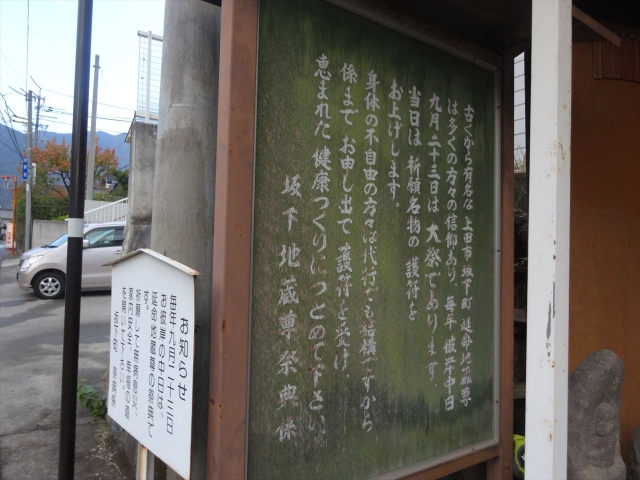 古くから有名な上田市坂下町延命地蔵尊
は多くの方々の信仰あり、毎年彼岸中日
九月二十三日は大祭であります。
当日は祈願名物の護符を
お上げします。
身体の不自由の方々は代行でも結構ですから
係まで お申し出て護符を受け、
恵まれた健康づくりにつとめて下さい。
坂下地蔵尊祭典係
お知らせ
毎年九月二十三日
お彼岸の中日は、
延命地蔵尊の
す。